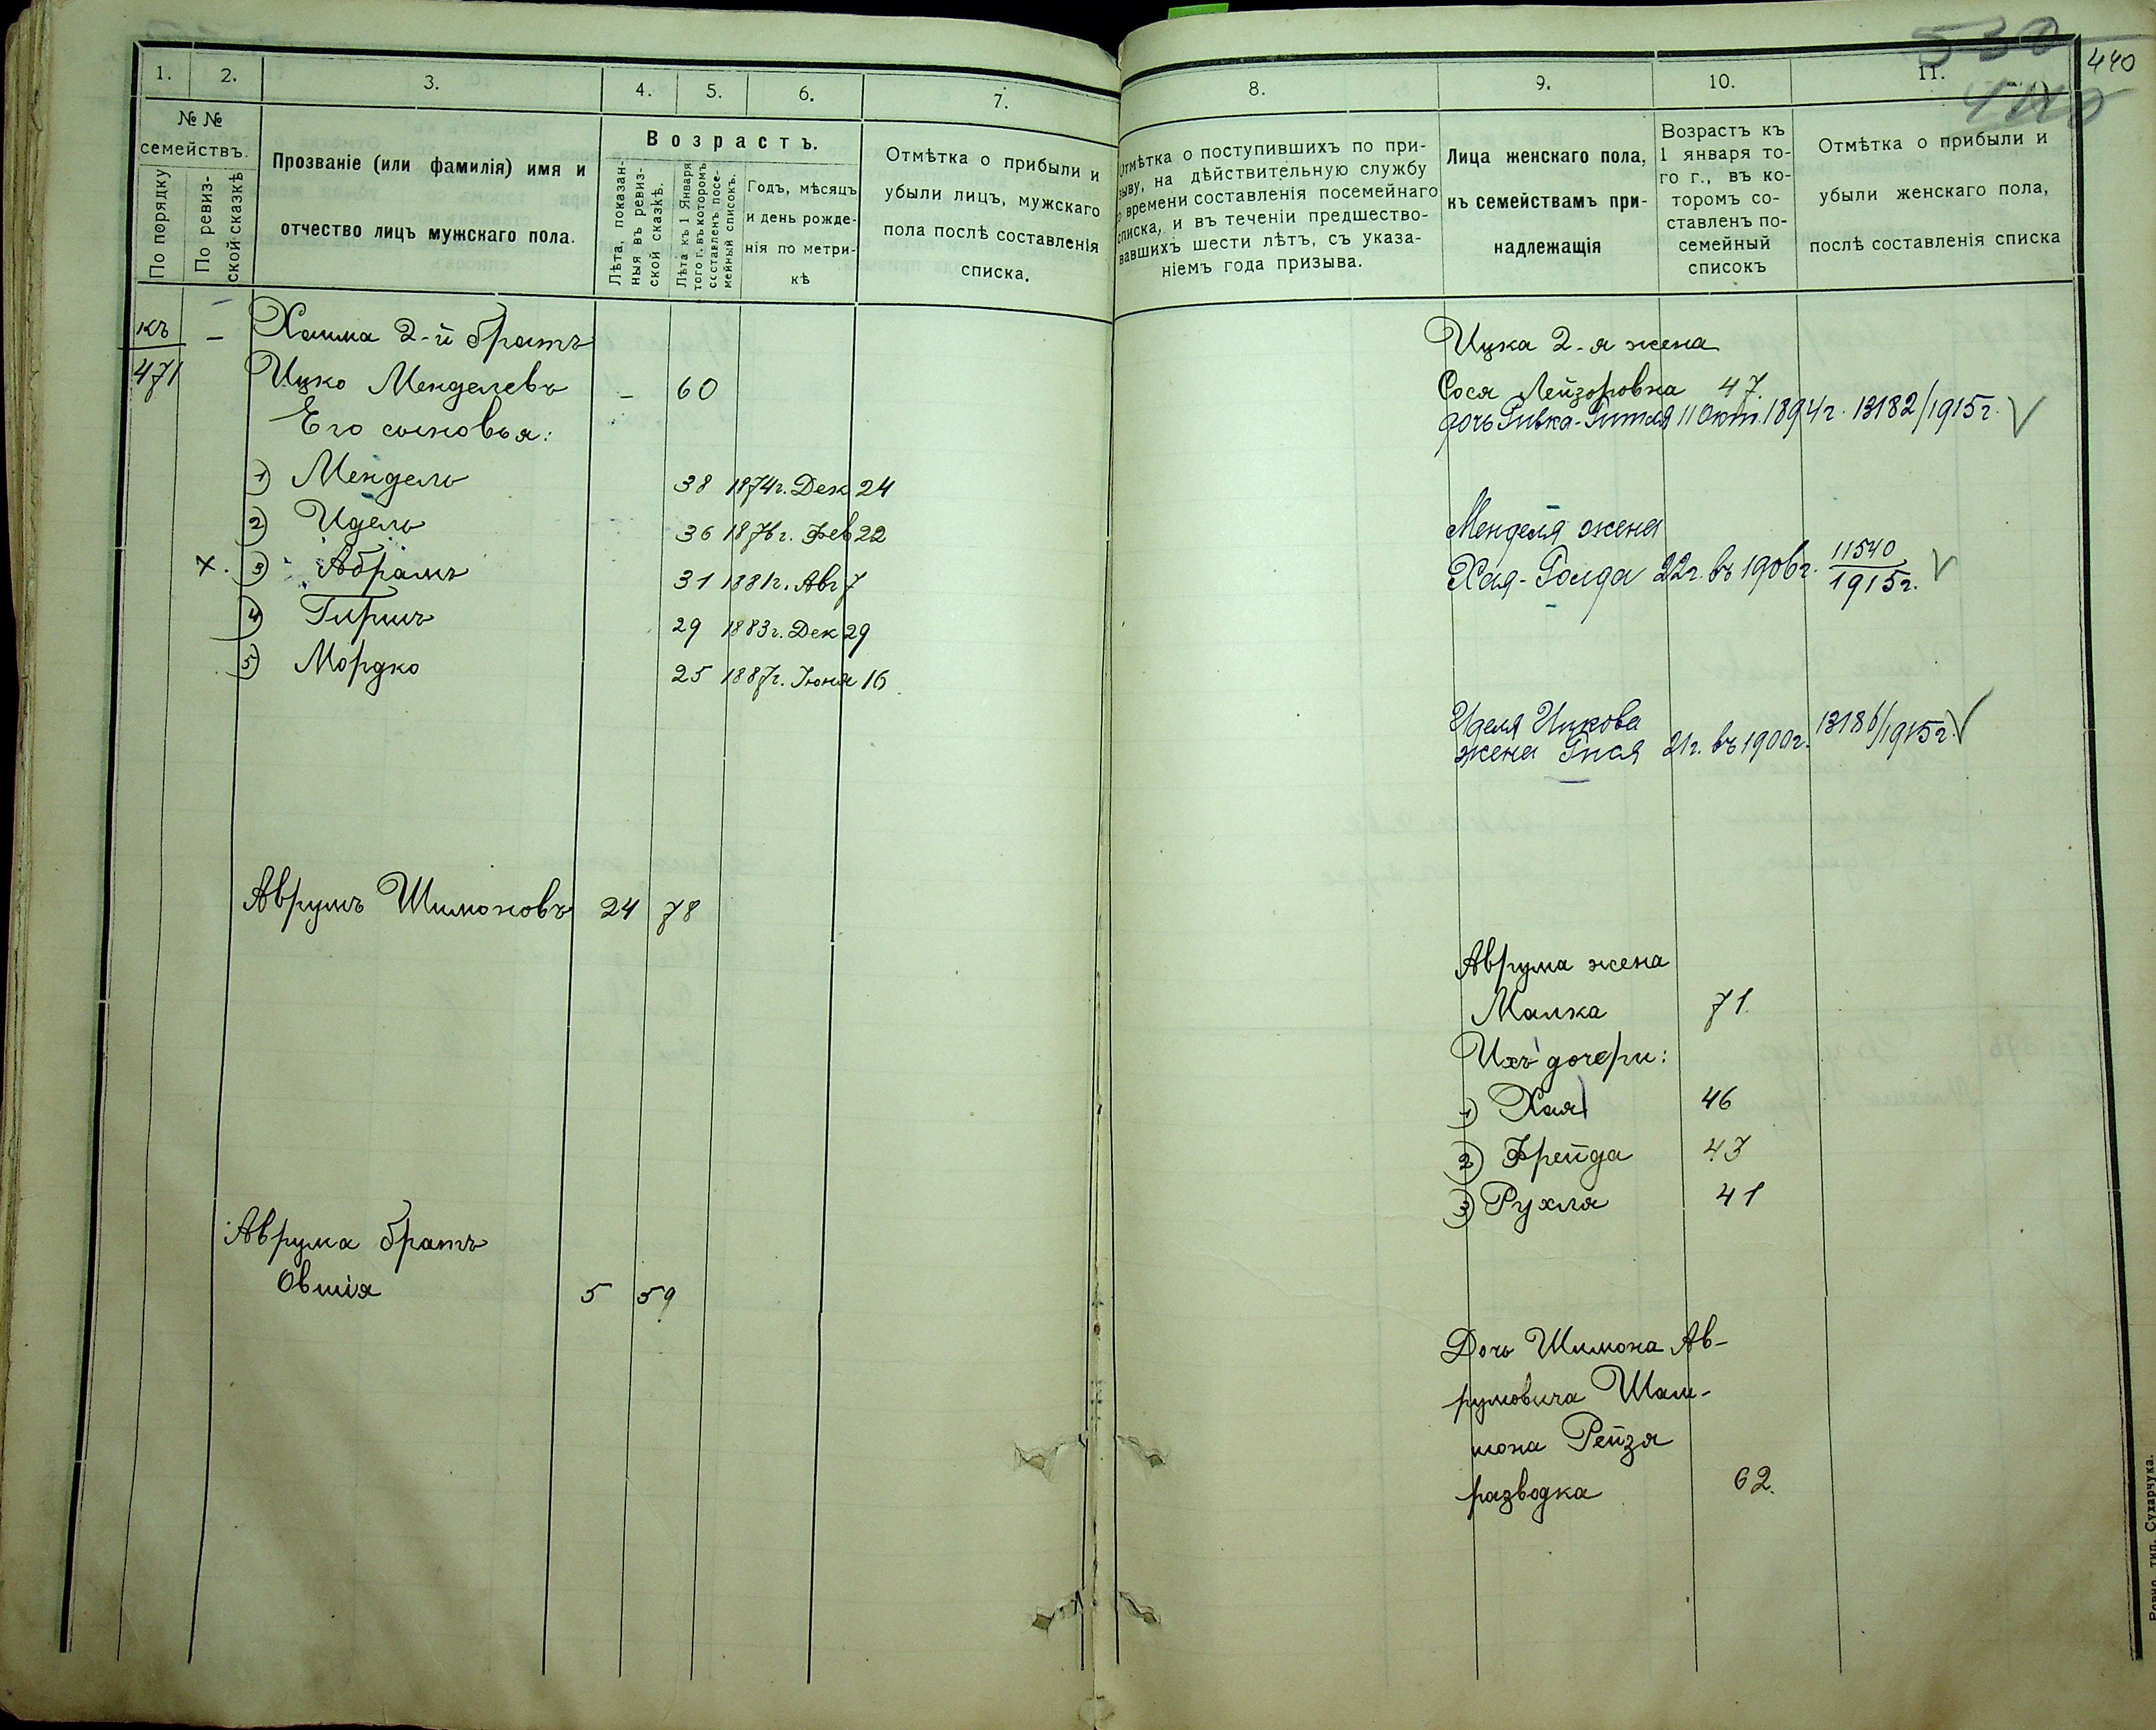 530
440
440
1.
2.
3.
4.
5.
6.
7.
№ №
семействъ.
По порядку
По ревиз-
ской сказкѣ
Прозваніе (или фамилія) имя и
отчество лицъ мужскаго пола.
Возрастъ.
Лѣта, показан-
ныя въ ревиз-
ской сказкѣ.
Лѣта къ 1 Января
того г. въ которомъ
составленъ посе-
мейный списокъ.
Годъ, мѣсяцъ
и день рожде-
нія по метри-
кѣ
Отмѣтка о прибыли и
убыли лицъ, мужскаго
пола послѣ составленія
списка.
къ – Хаима 2-й братъ
471 Ицко Менделевъ – 60
Его сыновья:
1) Мендель 38 1874г. Дек 24
2) Идель 36 1876г. Фев 22
х. 3) Абрамъ 31 1881г. Авг 7
4) Гиршъ 29 1883г. Дек 29
5) Мордко 25 1887г. Іюня 16
Аврумъ Шимоновъ 24 78
Аврума братъ
Овшія 5 59
8.
9.
10.
11.
Отмѣтка о поступившихъ по при-
зыву, на дѣйствительную службу
о времени составленія посемейнаго
списка, и въ теченіи предшество-
вавшихъ шести лѣтъ, съ указа-
ніемъ года призыва.
Лица женскаго пола,
къ семействамъ при-
надлежащія
Возрастъ къ
1 января то-
го г., въ ко-
торомъ со-
ставленъ по-
семейный
списокъ
Отмѣтка о прибыли и
убыли женскаго пола,
послѣ составленія списка
Ицка 2-я жена
Сося Лейзоровна 47.
дочь Ривка-Гитля 11 Окт. 1894г. 13182/1915г.
Менделя жена
Хая-Голда 22г. въ 1906г. 11540/1915г.
Иделя Ицкова
жена Гися 21г. въ 1900г. 13186/1915г.
Аврума жена
Малка 71.
Ихъ дочери:
1) Хая 46
2) Фрейда 43
3) Рухля 41
Дочь Шимона Ав-
румовича Шам-
шона Рейзя
разводка 62.
Ровно, тип. Сухарчука.